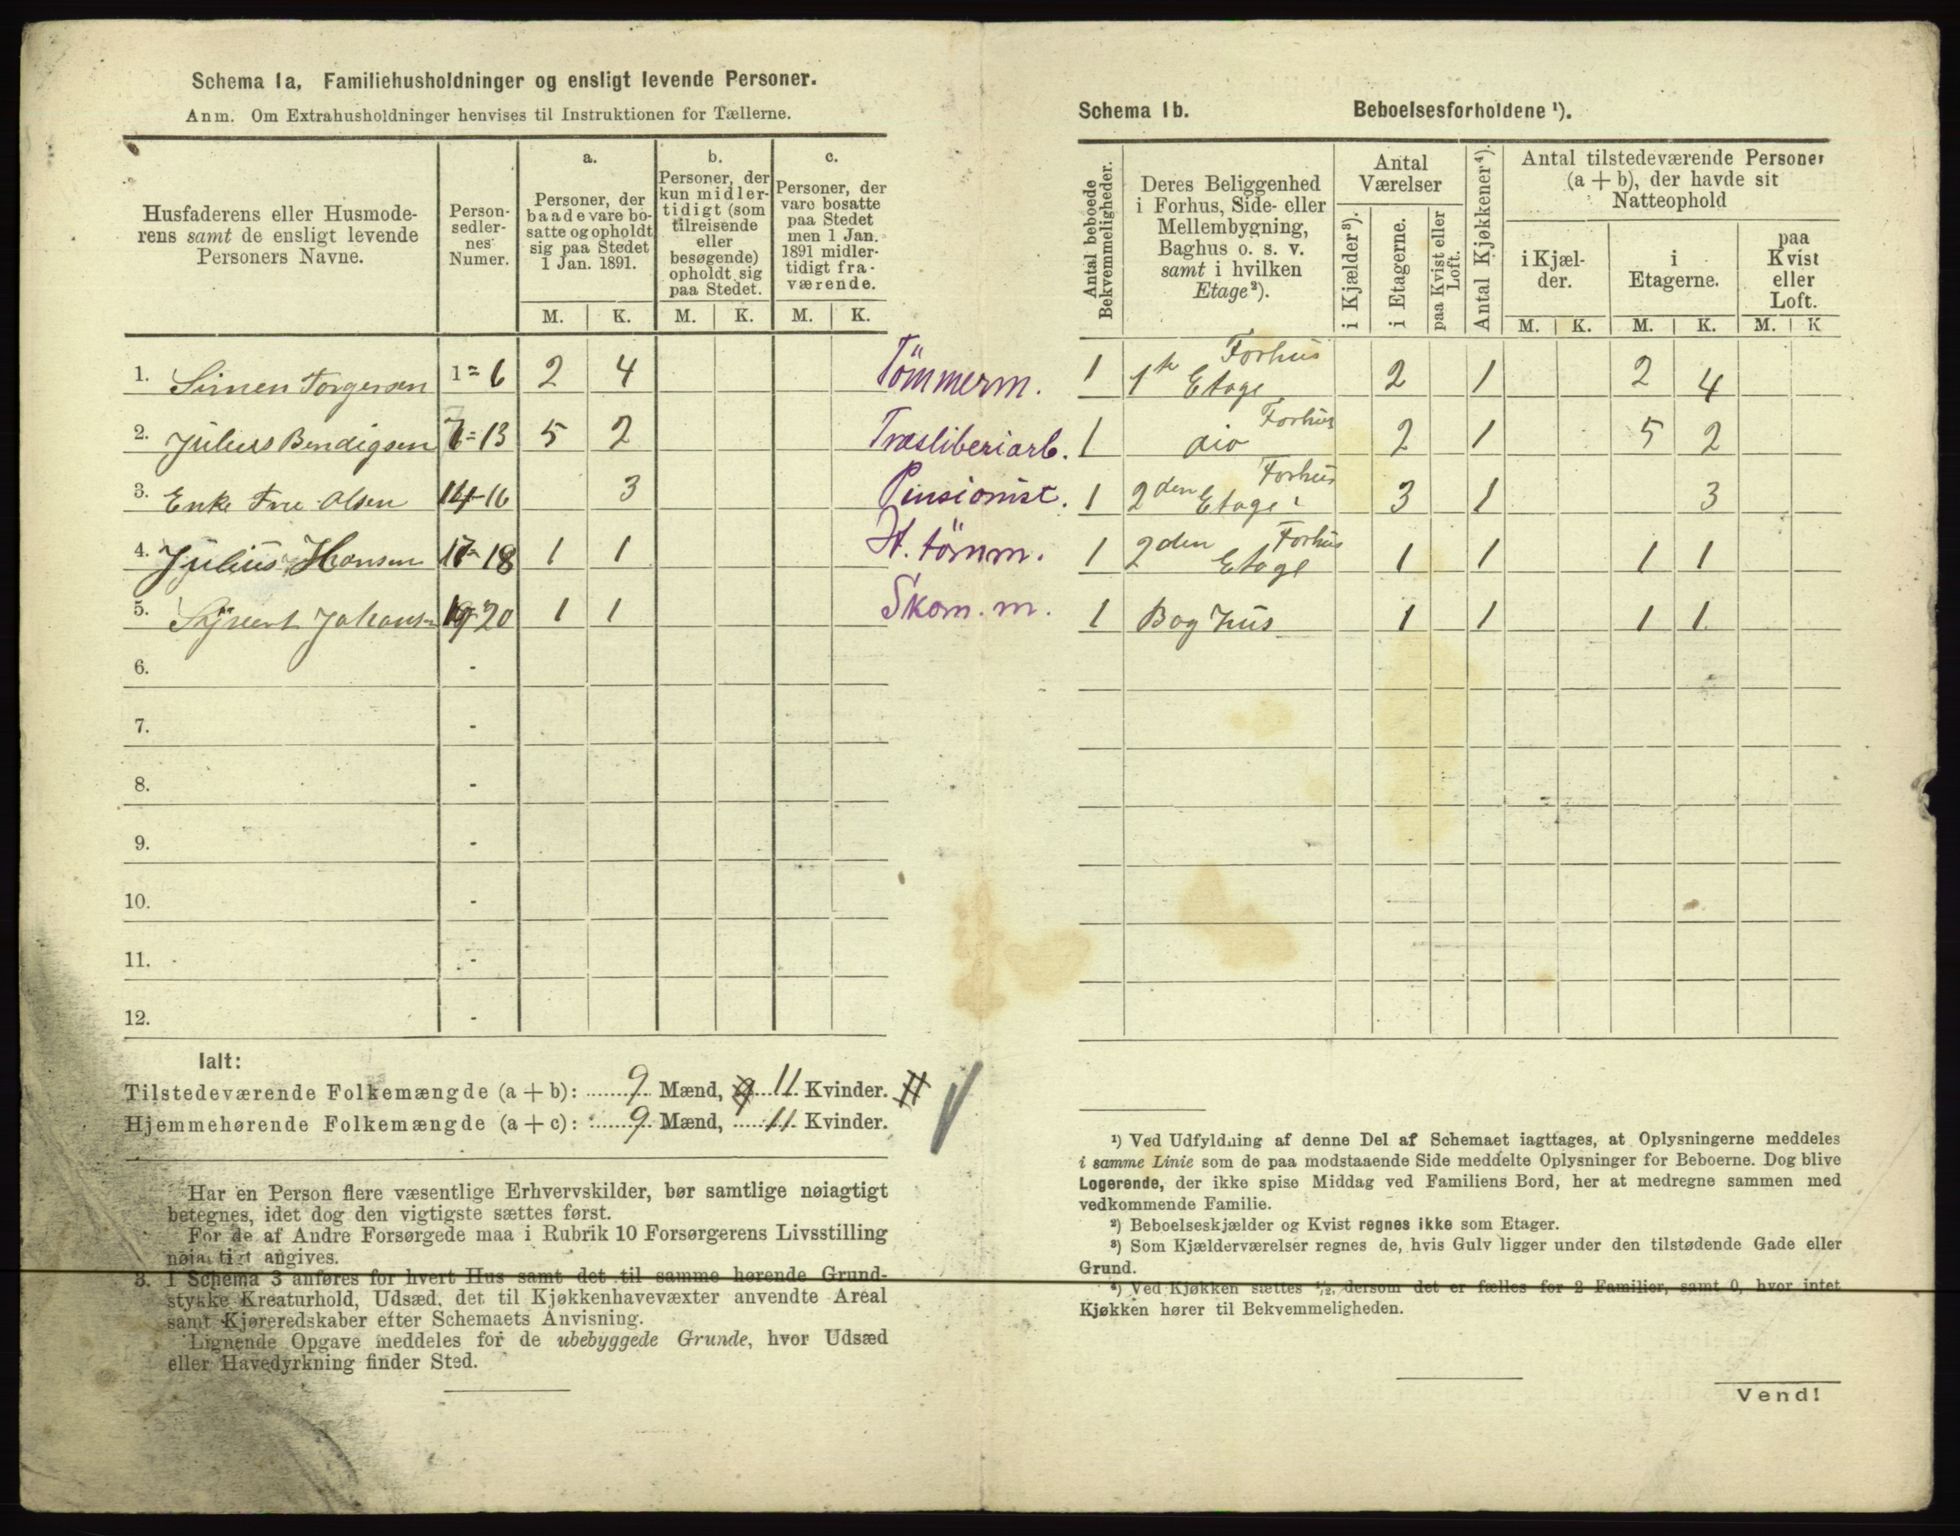 Schema 1a, Familiehusholdninger og ensligt levende Personer.
Anm. Om Extrahusholdninger henvises til Instruktionen for Tællerne.
Husfaderens eller Husmoderens samt de ensligt levende Personers Navne.
Personsedlernes Numer.
a. Personer, der baade vare bosatte og opholdt sig paa Stedet 1 Jan. 1891.
b. Personer, der kun midlertidigt (som tilreisende eller besøgende) opholdt sig paa Stedet.
c. Personer, der vare bosatte paa Stedet men 1 Jan. 1891 midlertidigt fraværende.
M. K. M. K. M. K.
1. Simen Torgersen 1-6 2 4 Tömmerm.
2. Julius Bendigsen 7-13 5 2 Træsliberiarb.
3. Enke Fru Olsen 14-16 3 Pensionist.
4. Julius Hansen 17-18 1 1 H. tömm.
5. Sigvert Johans 19-20 1 1 Skom. m.
6. -
7. -
8. -
9. -
10. -
11. -
12. -
Ialt:
Tilstedeværende Folkemængde (a + b): 9 Mænd, 9 11 Kvinder. #
Hjemmehørende Folkemængde (a + c): 9 Mænd, 11 Kvinder.
Har en Person flere væsentlige Erhvervskilder, bør samtlige nøiagtigt
betegnes, idet dog den vigtigste sættes først.
For de af Andre Forsørgede maa i Rubrik 10 Forsørgerens Livsstilling
nøiagtigt angives.
3. I Schema 3 anføres for hvert Hus samt det til samme hørende Grund-
stykke Kreaturhold, Udsæd, det til Kjøkkenhavevæxter anvendte Areal
samt Kjøreredskaber efter Schemaets Anvisning.
Lignende Opgave meddeles for de ubebyggede Grunde, hvor Udsæd
eller Havedyrkning finder Sted.
Schema 1b. Beboelsesforholdene ¹).
Antal beboede Bekvemmeligheder.
Deres Beliggenhed i Forhus, Side- eller Mellembygning, Baghus o. s. v. samt i hvilken Etage²).
Antal Værelser
i Kjælder³).
i Etagerne.
paa Kvist eller Loft.
Antal Kjøkkener⁴).
Antal tilstedeværende Personer (a + b), der havde sit Natteophold
i Kjælder.
i Etagerne.
paa Kvist eller Loft.
M. K. M. K. M. K
1 1te Etage Forhus 2 1 2 4
1 dio Forhus 2 1 5 2
1 2den Etage Forhus 3 1 3
1 2den Etage Forhus 1 1 1 1
1 Bag hus 1 1 1 1
¹) Ved Udfyldning af denne Del af Schemaet iagttages, at Oplysningerne meddeles
i samme Linie som de paa modstaaende Side meddelte Oplysninger for Beboerne. Dog blive
Logerende, der ikke spise Middag ved Familiens Bord, her at medregne sammen med
vedkommende Familie.
²) Beboelseskjælder og Kvist regnes ikke som Etager.
³) Som Kjælderværelser regnes de, hvis Gulv ligger under den tilstødende Gade eller
Grund.
⁴) Ved Kjøkken sættes ¹/₂, dersom det er fælles for 2 Familier, samt 0, hvor intet
Kjøkken hører til Bekvemmeligheden.
Vend!